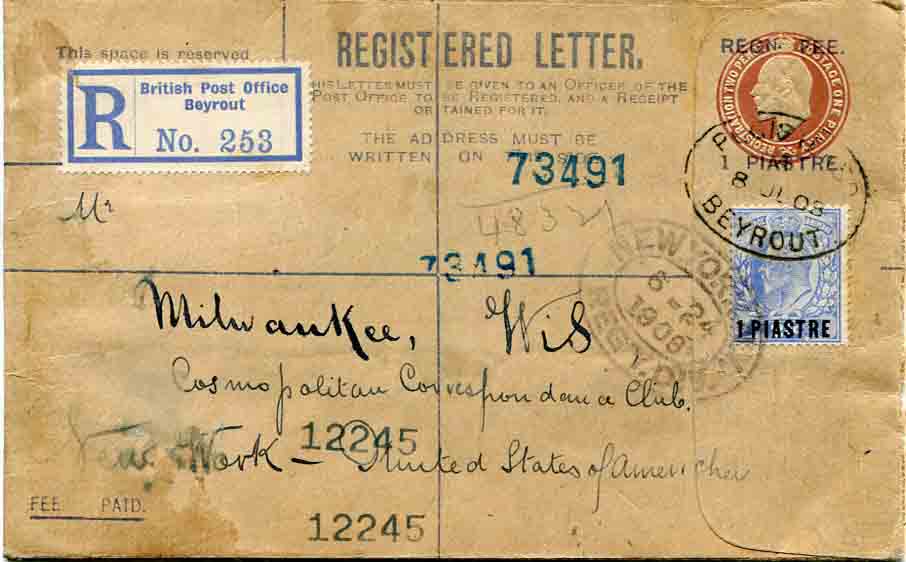 This space is reserved
REGISTERED LETTER.
REGN. FEE.
THIS LETTER MUST BE GIVEN TO AN OFFICER OF THE
POST OFFICE TO BE REGISTERED, AND A RECEIPT
OBTAINED FOR IT.
THE ADDRESS MUST BE
WRITTEN ON
R
British Post Office
Beyrout
No. 253
REGISTRATION TWO PENCE POSTAGE ONE PENNY
1 PIASTRE.
8 JL 08
BEYROUT
73491
Mr
4832
73491
NEW YORK
6-24
1908
REG'Y. DIV.
1 PIASTRE
Milwaukee, Wis
Cosmopolitan Correspondance Club.
12245
New York - United States of America
FEE PAID.
12245